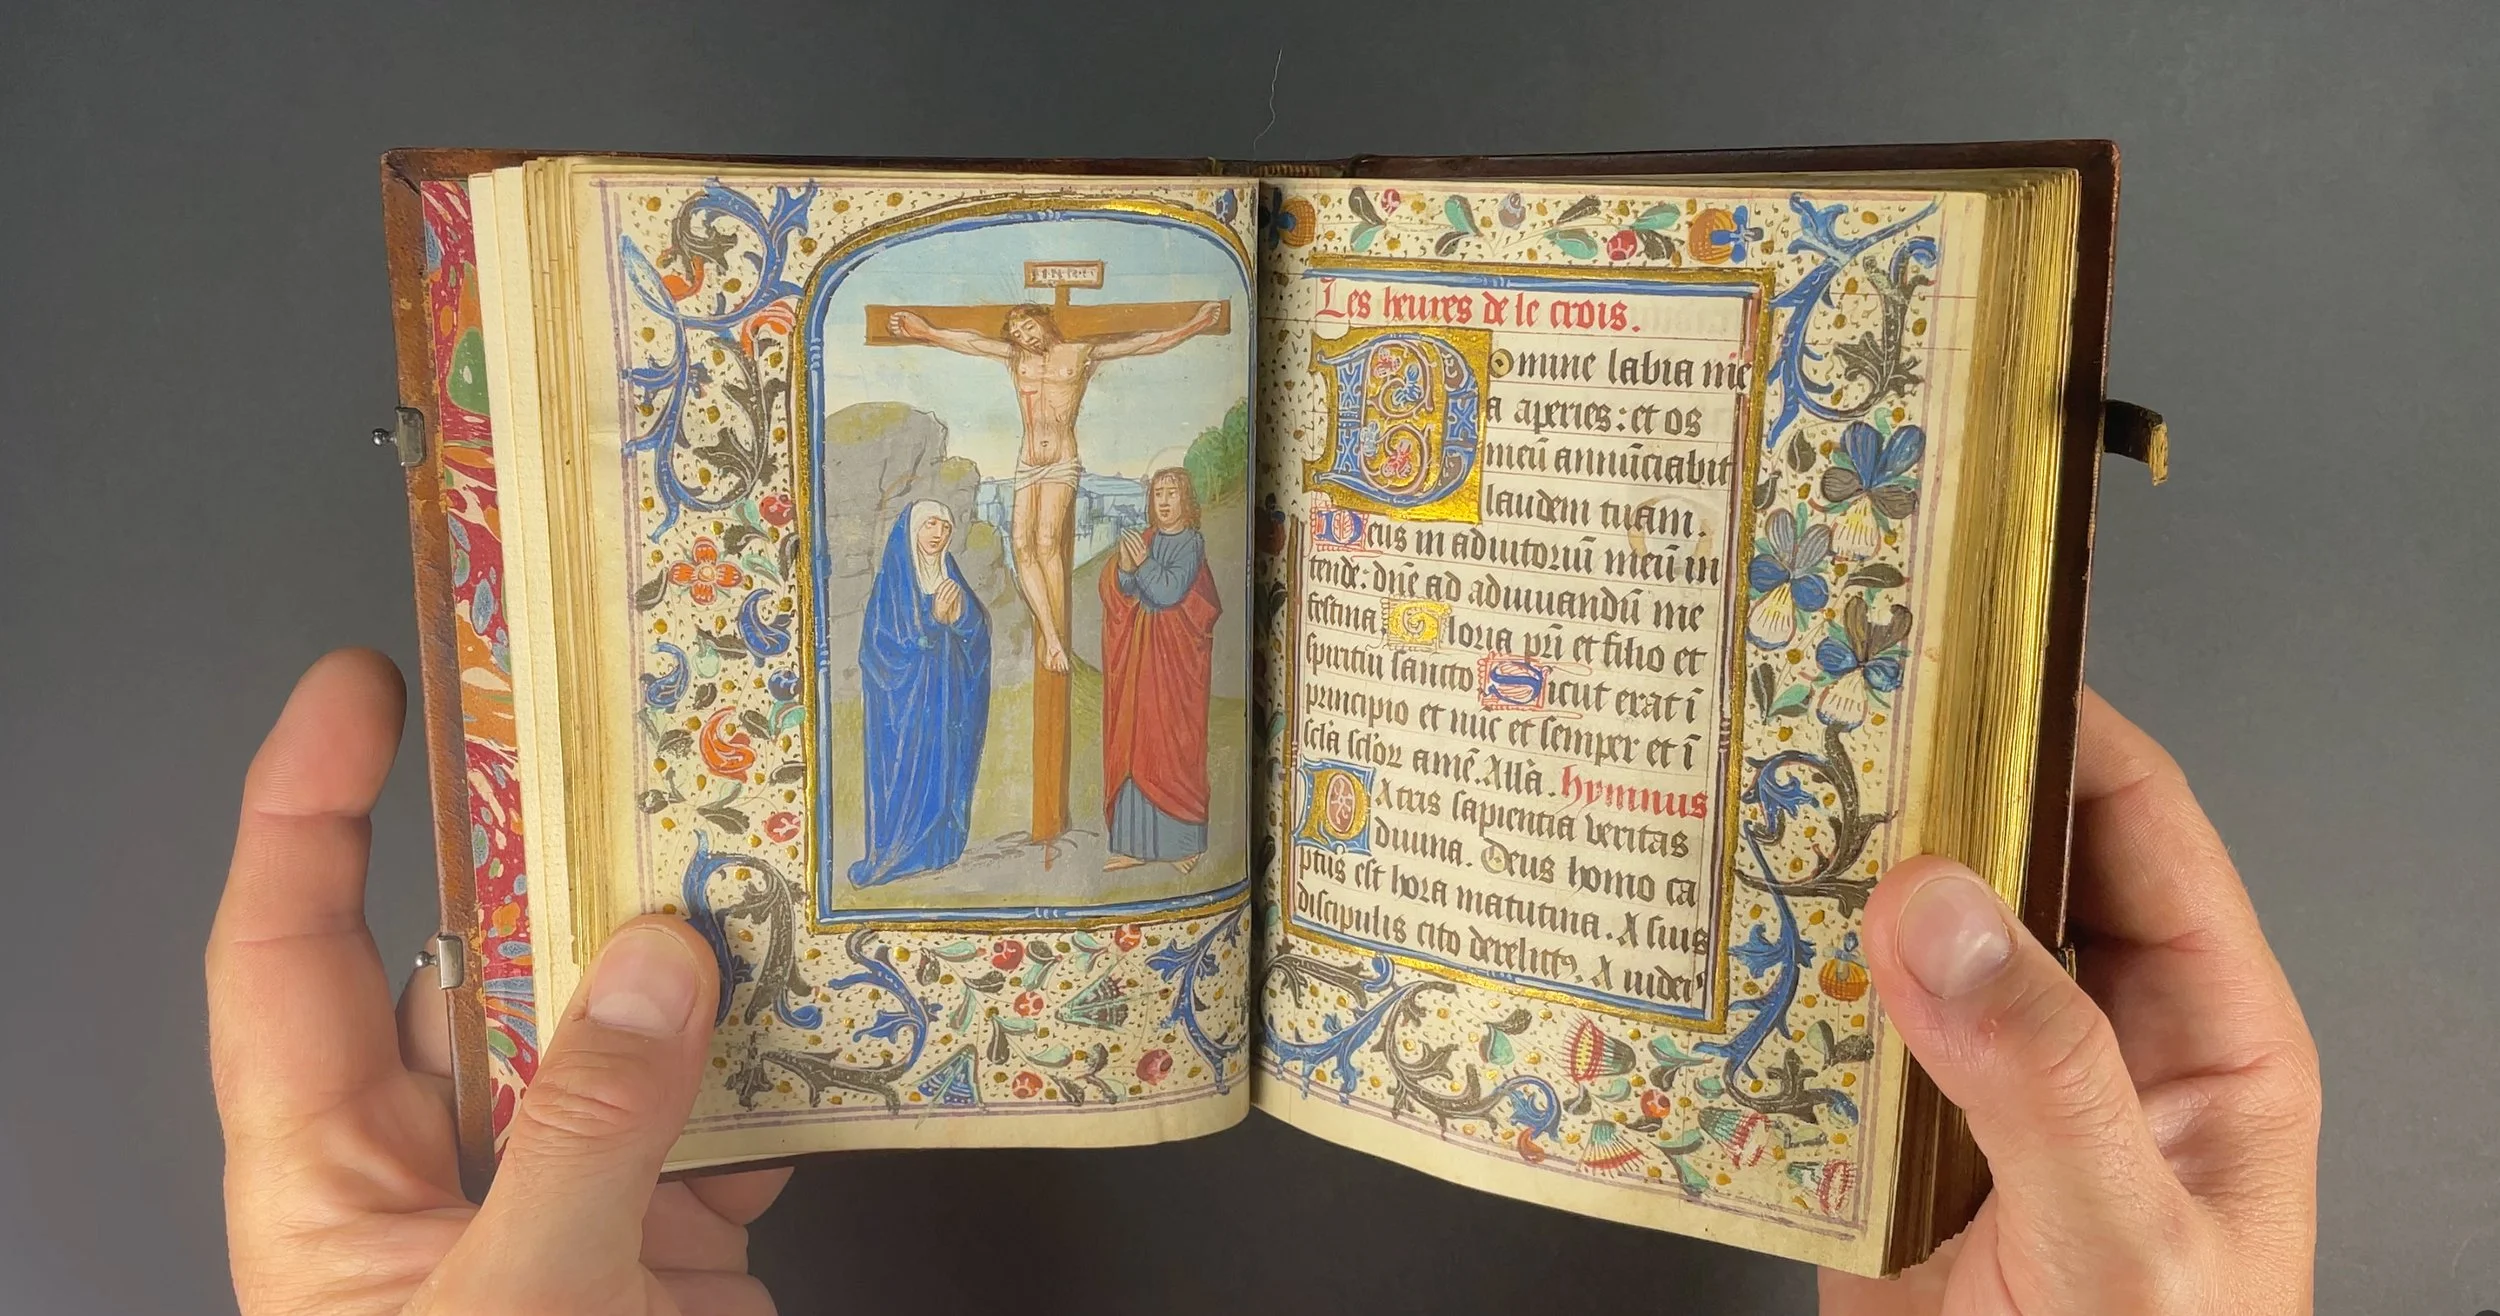 Les heures de le crois.
Domine labia me
a aperies: et os
meū annūciabit
laudem tuam.
Deus in adiutoriū meū in
tende: dñe ad adiuuandū me
festina. Gloria pr̄i et filio et
spiritui sancto Sicut erat ī
principio et nūc et semper et ī
scl̄a scl̄oꝝ amē. All̄a. hymnus
PAtris sapientia veritas
diuina. Deus homo ca
ptus est hora matutina. A suis
discipulis cito derelictꝰ. A iudeiˢ